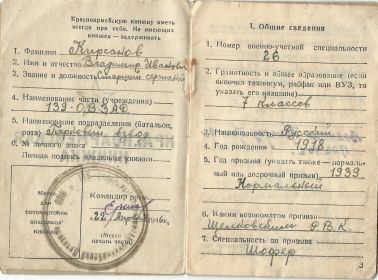 Красноармейскую книжку иметь
всегда при себе. Не имеющих
книжек — задерживать
1. Фамилия Кирсанов
2. Имя и отчество Владимир Иванович
3. Звание и должность Старший сержант
4. Наименование части (учреждения)
139
5. Наименование подразделения (батальон,
рота) Парковый взвод
6. № личного знака
Личная подпись владельца книжки
Место
для
фотокарточки
владельца
книжки
Командир части
22 1946 г.
(Место
печати части)
I. Общие сведения
1. Номер военно-учетной специальности
26
2. Грамотность и общее образование (если
окончил техникум, рабфак или ВУЗ, то
указать его название)
7 классов
3. Национальность Русский
4. Год рождения 1918
5. Год призыва (указать также — нормаль-
ный или досрочный призыв) 1939
Нормальный
6. Каким военкоматом призван
Щелковским Р.В.К.
7. Специальность до призыва
Шофер
3